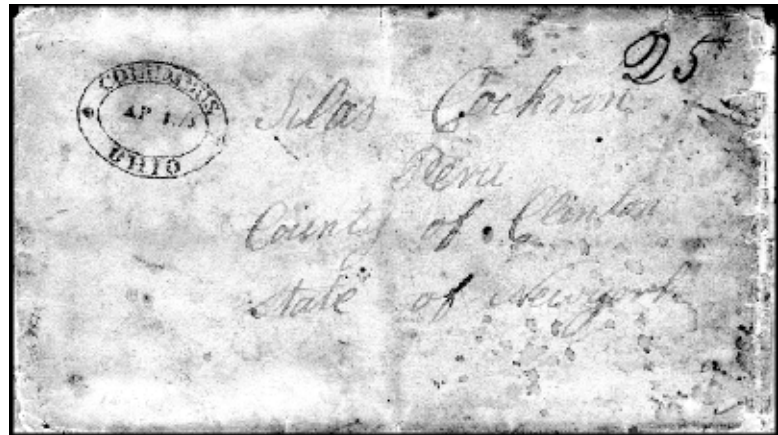 25
COLUMBUS
AP
OHIO
Silas Cochran
Peru
County of Clinton
State of Newyork